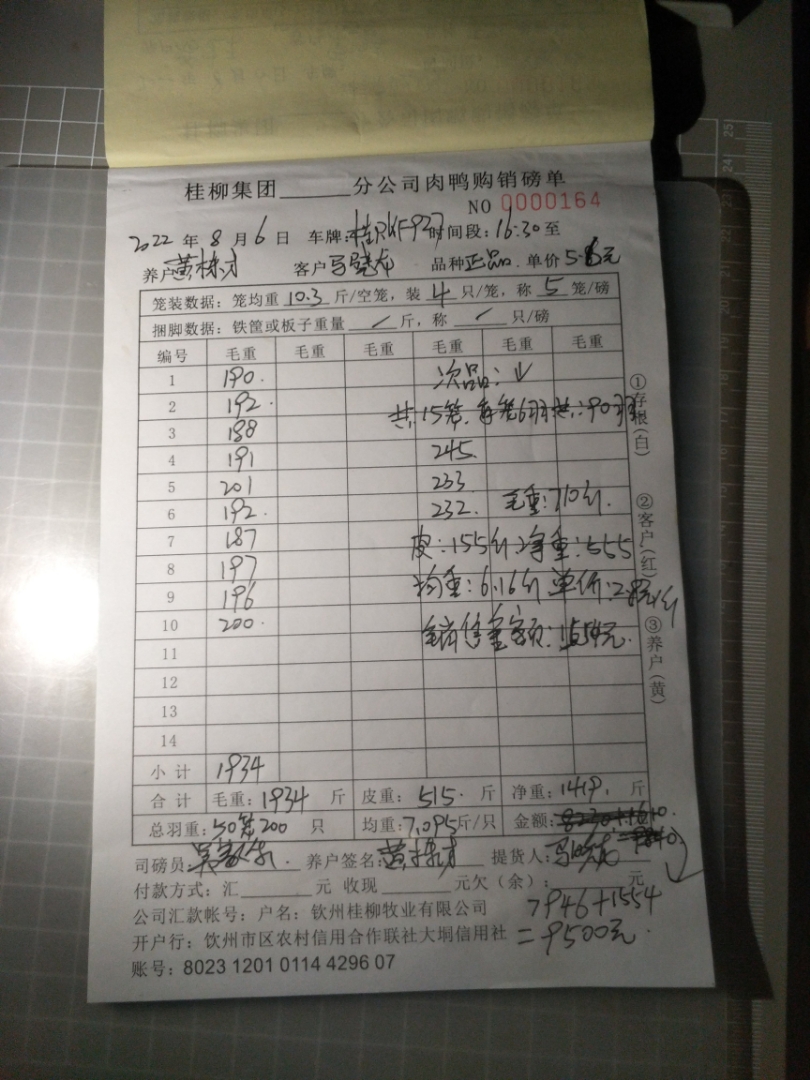 桂柳集团______分公司肉鸭购销磅单
NO 0000164
2022 年 8 月 6 日 车牌: 时间段: 16:30 至
养户 客户 品种 正品 单价 元
笼装数据：笼均重 10.3 斤/空笼，装 4 只/笼，称 5 笼/磅
捆脚数据：铁筐或板子重量 / 斤，称 / 只/磅
编号 毛重 毛重 毛重 毛重 毛重 毛重
1 190. 次品：↓
2 192. 共15笼. 每笼6羽 共:90羽
3 188
4 191 245
5 201 233
6 192. 232. 毛重:710斤.
7 187 皮:155斤 净重:555
8 197 均重:6.16斤 单价:2.8元/斤
9 196
10 200. 销售金额:1554元.
11
12
13
14
小计 1934
合计 毛重: 1934 斤 皮重: 515. 斤 净重: 1419. 斤
总羽重: 50笼200 只 均重: 7.095斤/只 金额:
司磅员 养户签名: 提货人: 元
付款方式：汇______元 收现______元欠（余）：______元
公司汇款帐号：户名：钦州桂柳牧业有限公司 7946+1554
开户行：钦州市区农村信用合作联社大垌信用社 =9500元.
账号：8023 1201 0114 4296 07
①存根（白）
②客户（红）
③养户（黄）